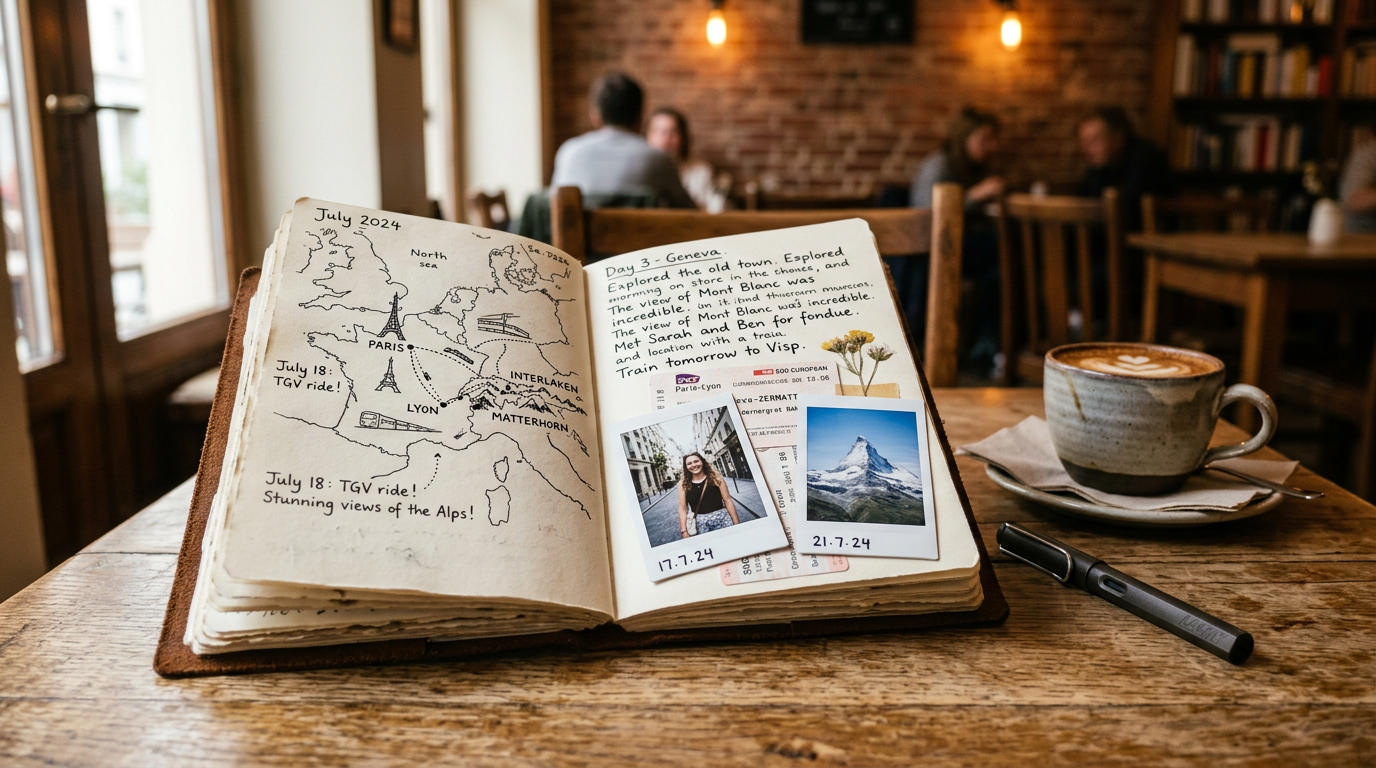 July 2024
North
sea
PARIS
July 18:
TGV ride!
INTERLAKEN
LYON
MATTERHORN
July 18: TGV ride!
Stunning views of the Alps!
Day 3 - Geneva.
Explored the old town. Explored
morning on store in the choices, and
The view of Mont Blanc was
incredible. in it. and
The view of Mont Blanc was incredible.
Met Sarah and Ben for fondue.
and location with a train.
Train tomorrow to Visp.
SNCF
SOO CUROPEAN
Paris-Lyon
-ZERMATT
17.7.24
21.7.24